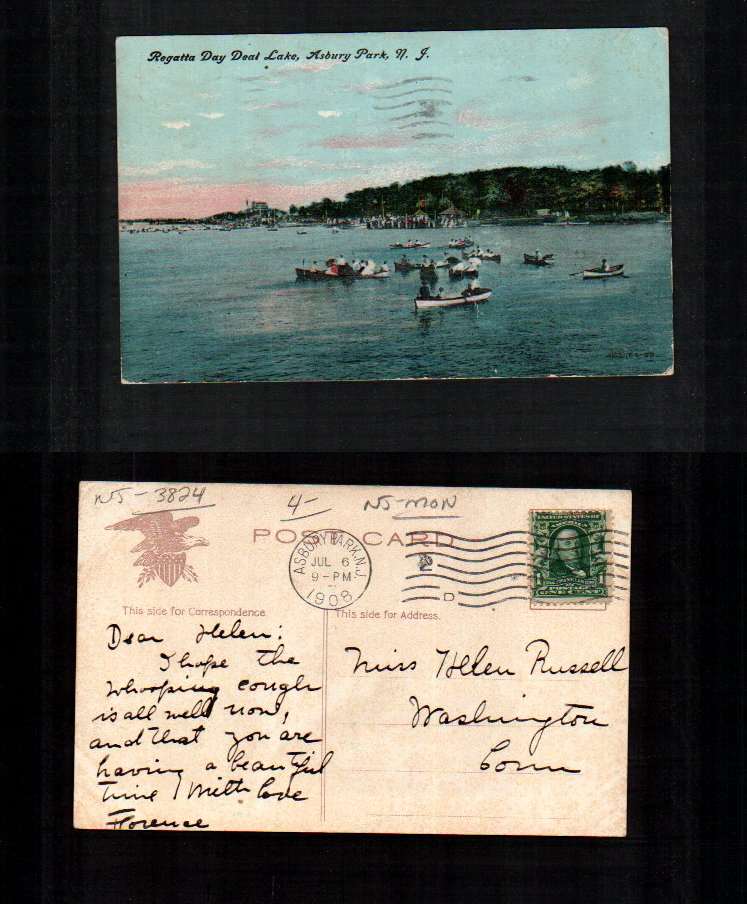 Regatta Day Deal Lake, Asbury Park, N. J.
NJ-3824
4-
NJ-MON
POST CARD
ASBURY PARK, N.J.
JUL 6
9-PM
1908
D
UNITED STATES OF
AMERICA
1
FRANKLIN
POSTAGE
ONE CENT
This side for Correspondence.
This side for Address.
Dear Helen:
I hope the
whooping cough
is all well now,
and that you are
having a beautiful
time. With love
Florence
Miss Helen Russell
Washington
Conn